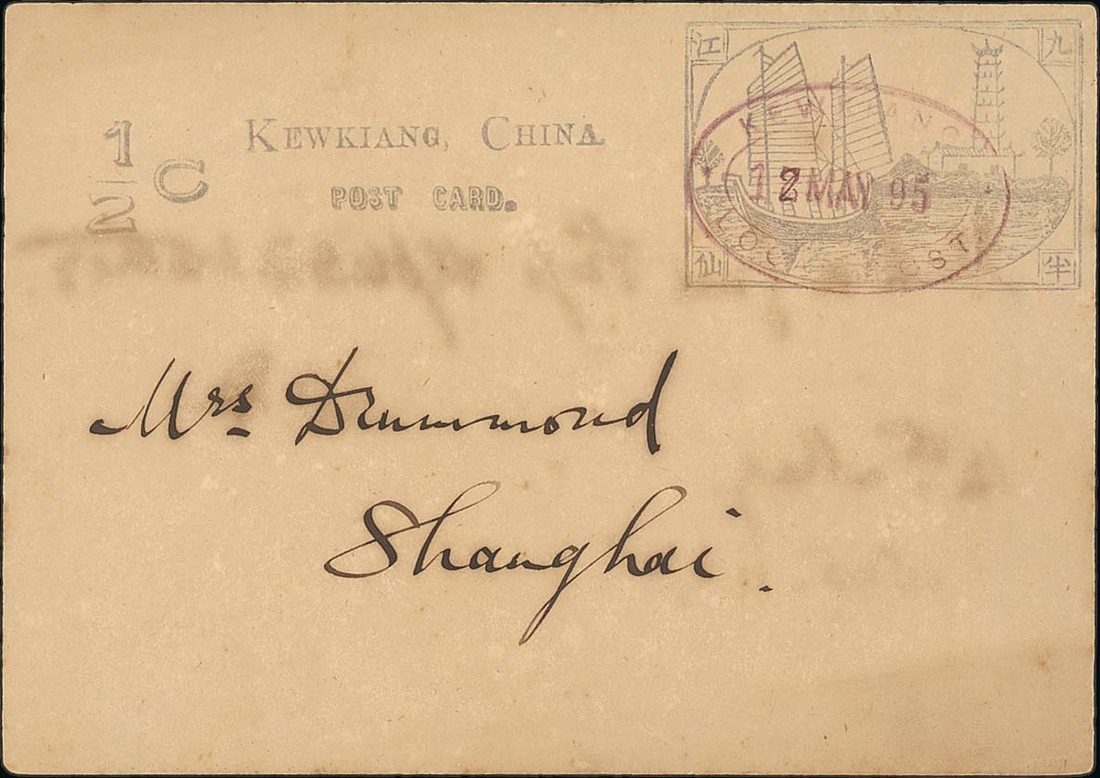 江 九
½ C
KEWKIANG, CHINA.
POST CARD.
KEWKIANG
12 MAY 95
LOCAL POST.
仙 半
Mrs Drummond
Shanghai.